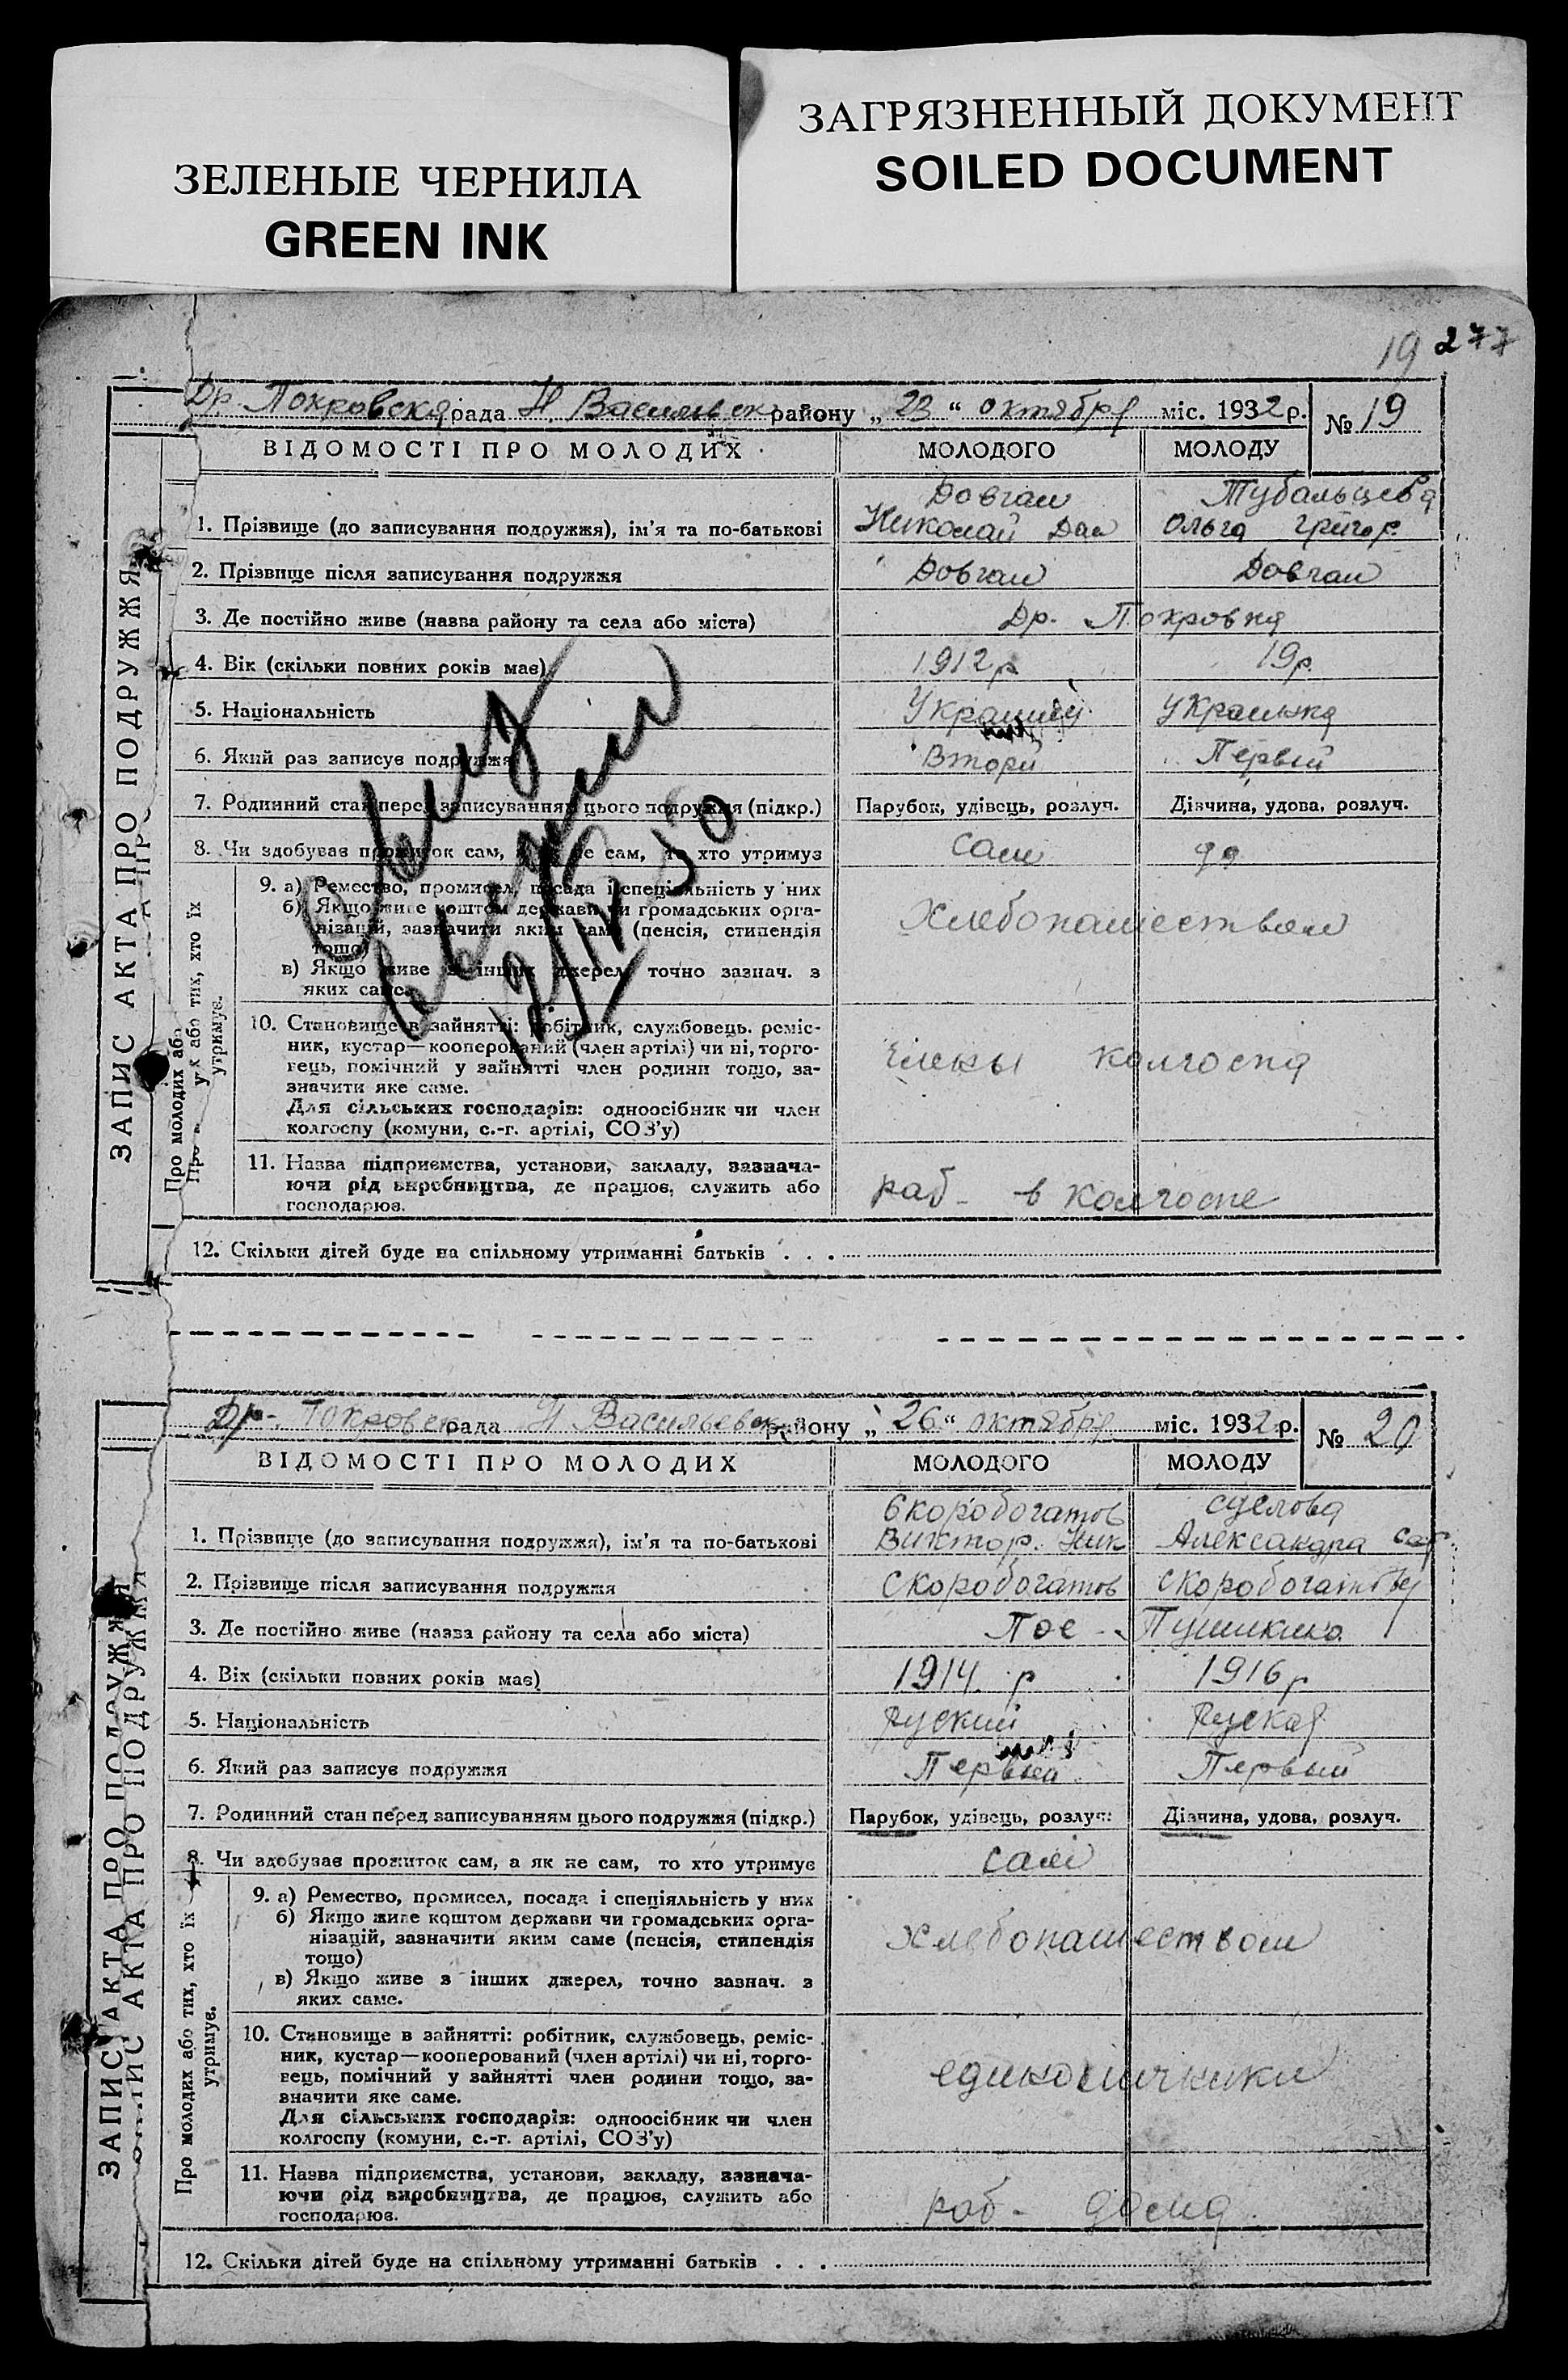 ЗЕЛЕНЫЕ ЧЕРНИЛА
GREEN INK
ЗАГРЯЗНЕННЫЙ ДОКУМЕНТ
SOILED DOCUMENT
19 277
ЗАПИС АКТА ПРО ПОДРУЖЖЯ
Др. Покровская рада Н Васильевск району „ 23 “ октября міс. 1932 р. № 19
ВІДОМОСТІ ПРО МОЛОДИХ МОЛОДОГО МОЛОДУ
Довгаль Тубальцева
1. Прізвище (до записування подружжя), ім'я та по-батькові Николай Дан Ольга Григор.
2. Прізвище після записування подружжя Довгаль Довгаль
3. Де постійно живе (назва району та села або міста) Др. Покровка
4. Вік (скільки повних років має) 1912 р 19 р.
5. Національність Украинец Украинка
6. Який раз записує подружжя Втори Первый
7. Родинний стан перед записуванням цього подружжя (підкр.) Парубок, удівець, розлуч. Дівчина, удова, розлуч.
8. Чи здобував прожиток сам, а як не сам, то хто утримує сам да
Про молодих або тих, хто їх утримує.
9. а) Ремество, промисел, посада і спеціяльність у них
б) Якщо живе коштом держави чи громадських орга-
нізацій, зазначити яким саме (пенсія, стипендія
тощо)
Хлебопашеством
в) Якщо живе з інших джерел, точно зазнач. з
яких саме.
10. Становище в зайнятті: робітник, службовець, реміс-
ник, кустар—кооперований (член артілі) чи ні, торго-
вець, помічний у зайнятті член родини тощо, за-
значити яке саме.
Члены колгоспа
Для сільських господарів: одноосібник чи член
колгоспу (комуни, с.-г. артілі, СОЗ'у)
11. Назва підприємства, установи, закладу, зазнача-
ючи рід виробництва, де працює, служить або
господарює.
раб - в колгоспе
12. Скільки дітей буде на спільному утриманні батьків . . .
ЗАПИС АКТА ПРО ПОДРУЖЖЯ
Др. Покровск рада Н Васильевск району „ 26 “ октября міс. 1932 р. № 20
ВІДОМОСТІ ПРО МОЛОДИХ МОЛОДОГО МОЛОДУ
Скоробогатов Суслова
1. Прізвище (до записування подружжя), ім'я та по-батькові Виктор. Ник Александра
2. Прізвище після записування подружжя Скоробогатов Скоробогатова
3. Де постійно живе (назва району та села або міста) Пос - Пушкино
4. Вік (скільки повних років має) 1914 р 1916 р
5. Національність Руский Руская
6. Який раз записує подружжя Первый Первый
7. Родинний стан перед записуванням цього подружжя (підкр.) Парубок, удівець, розлуч. Дівчина, удова, розлуч.
8. Чи здобував прожиток сам, а як не сам, то хто утримує сам
Про молодих або тих, хто їх утримує.
9. а) Ремество, промисел, посада і спеціяльність у них
б) Якщо живе коштом держави чи громадських орга-
нізацій, зазначити яким саме (пенсія, стипендія
тощо)
Хлебопашеством
в) Якщо живе з інших джерел, точно зазнач. з
яких саме.
10. Становище в зайнятті: робітник, службовець, реміс-
ник, кустар—кооперований (член артілі) чи ні, торго-
вець, помічний у зайнятті член родини тощо, за-
значити яке саме.
единоличники
Для сільських господарів: одноосібник чи член
колгоспу (комуни, с.-г. артілі, СОЗ'у)
11. Назва підприємства, установи, закладу, зазнача-
ючи рід виробництва, де працює, служить або
господарює.
раб - дома
12. Скільки дітей буде на спільному утриманні батьків . . .